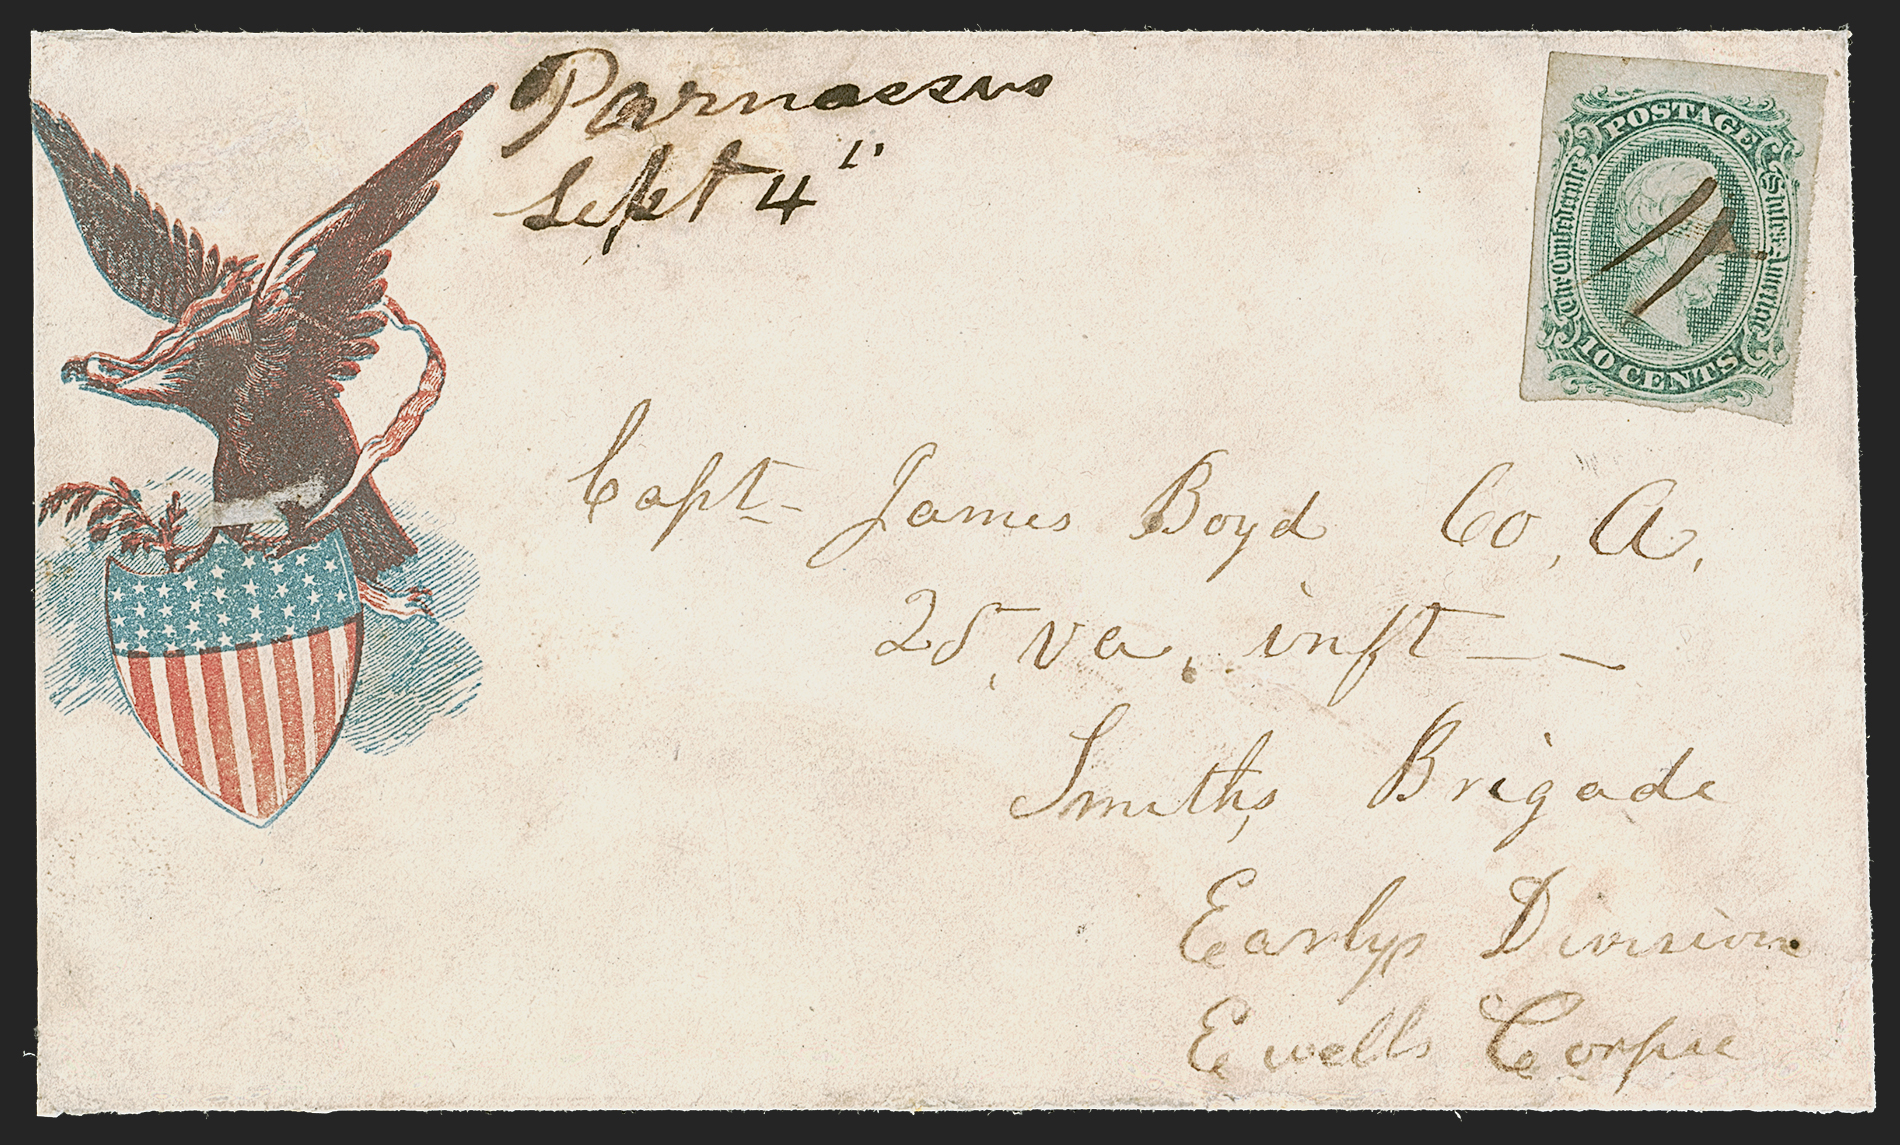 Parnassus
Sept 4"
POSTAGE
The Confederate States of America
10 CENTS
Capt- James Boyd Co, A,
25, va, inft - -
Smiths, Brigade
Earlys Division
Ewells Corpse